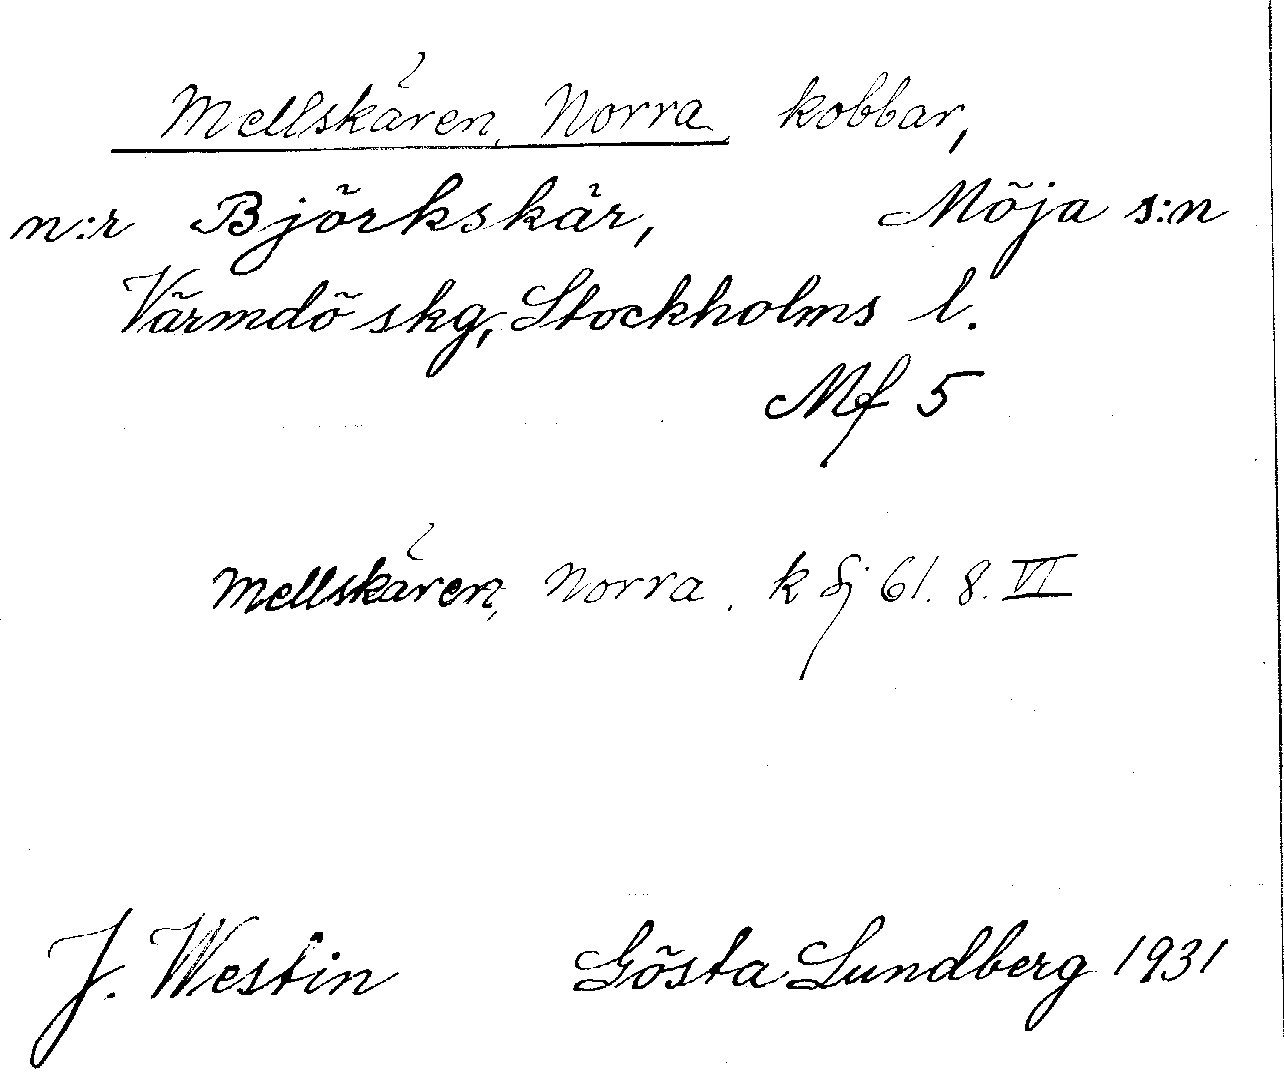 Mellskären, Norra, kobbar,
n:r Björkskär, Möja s:n
Värmdö skg, Stockholms l.
Mf 5
Mellskären, Norra. k Sj 61. 8. VI
J. Westin Gösta Lundberg 1931